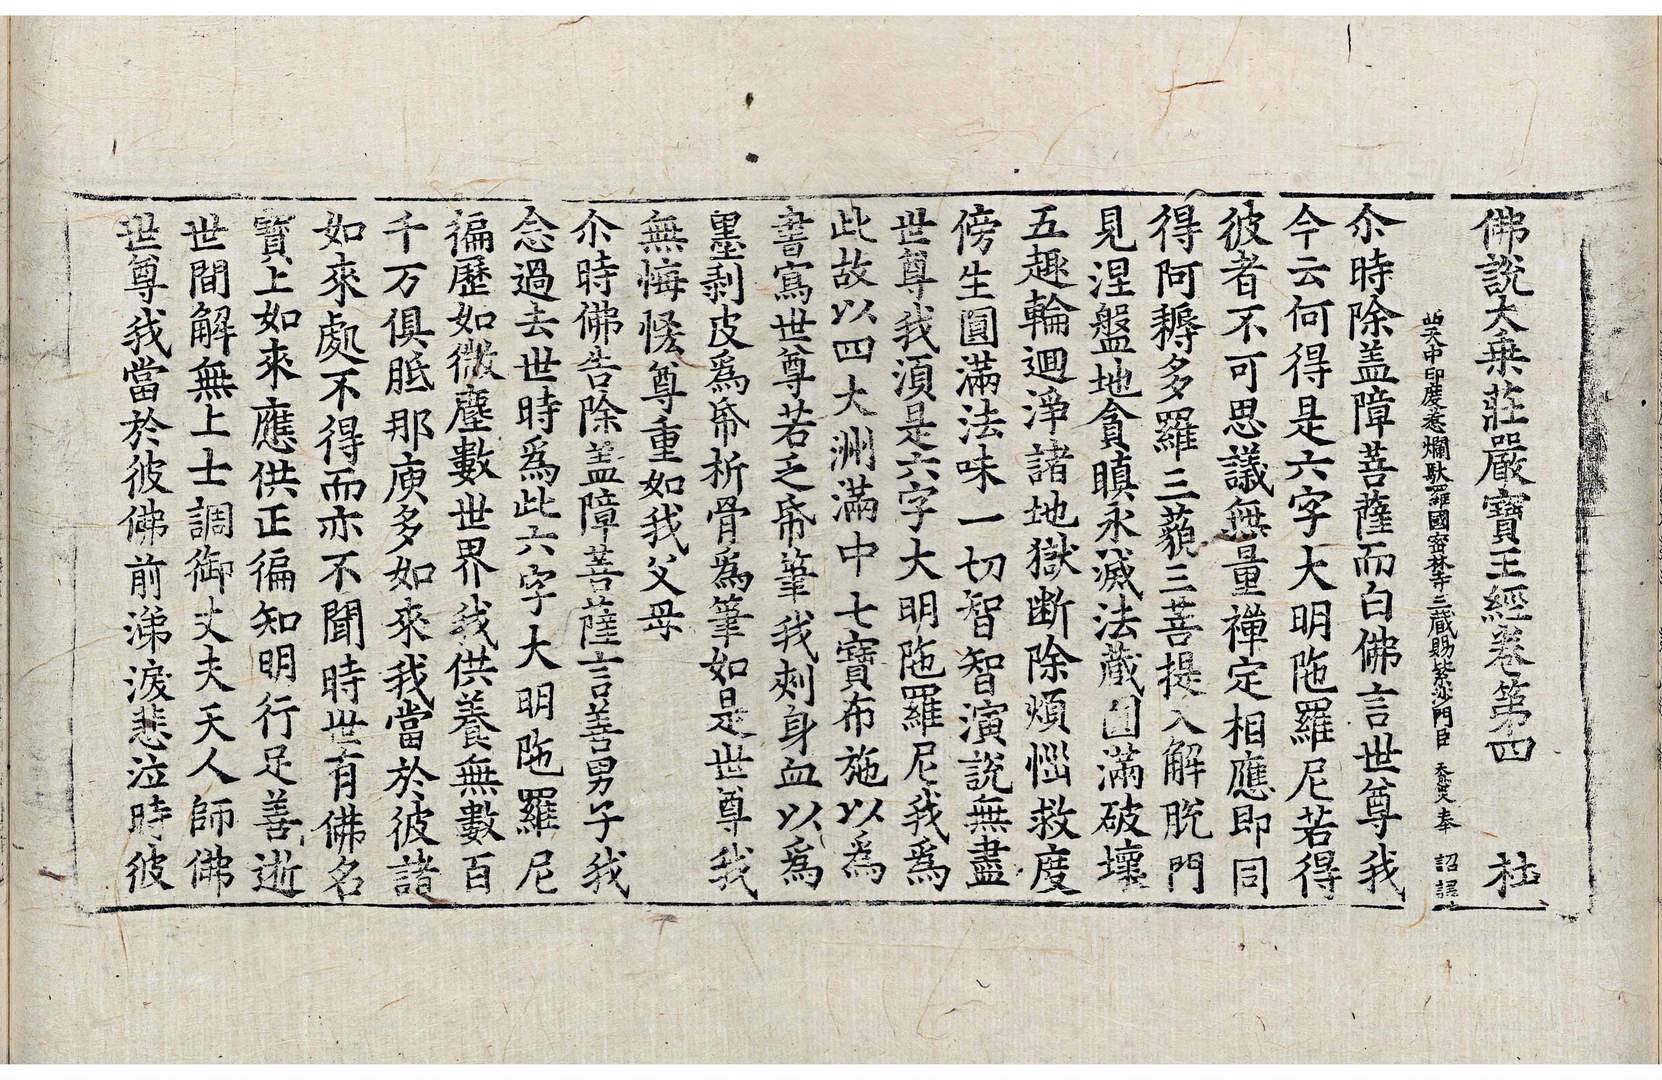 佛說大乗莊嚴寶王經卷第四 杜
西天中印度惹爛馱囉國密林寺三藏賜紫沙門臣 天息災奉 詔譯
尒時除盖障菩薩而白佛言世尊我
今云何得是六字大明陁羅尼若得
彼者不可思議無量禪定相應即同
得阿耨多羅三藐三菩提入解脫門
見涅盤地貪瞋永滅法藏圓滿破壞
五趣輪迴淨諸地獄断除煩惱救度
傍生圓滿法味一切智智演說無盡
世尊我湏是六字大明陁羅尼我爲
此故以四大洲滿中七寶布施以爲
書寫世尊若乏帋筆我刾身血以爲
墨剥皮爲帋析骨爲筆如是世尊我
無悔恡尊重如我父母
尒時佛告除盖障菩薩言善男子我
念過去世時爲此六字大明陁羅尼
徧歷如微塵數世界我供養無數百
千万俱胝那庾多如來我當於彼諸
如來處不得而亦不聞時世有佛名
寶上如來應供正徧知明行足善逝
世間解無上士調御丈夫天人師佛
世尊我當於彼佛前涕淚悲泣時彼